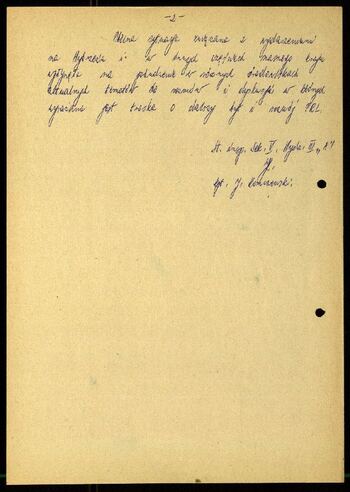 -2-
Obecna sytuacja związana z wydarzeniami
na Wybrzeżu i w innych częściach naszego kraju
wpłynęła na podniesienie w różnych środowiskach
aktualnych tematów do rozmów i w których
wyrażana jest troska o dalszy byt i rozwój PRL.
St. insp. Sek. V, Wydz. III "A"
ppr. J.